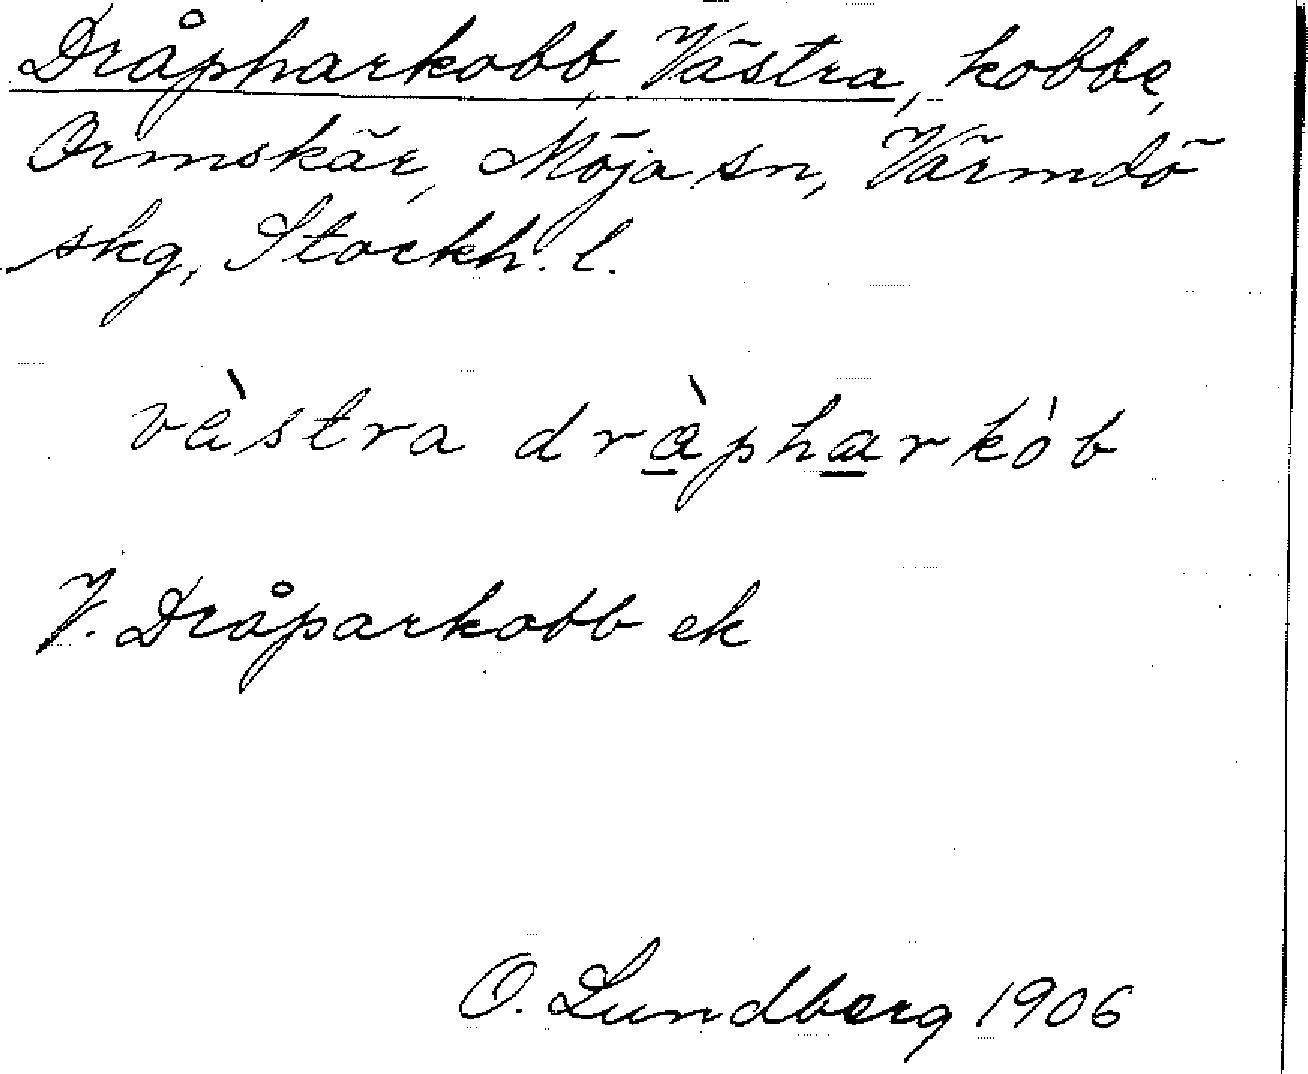 Dråpharkobb, Västra, kobbe,
Ormskär, Möja sn, Värmdö
skg, Stockh. l.
vàstra dràpharkȯ̀b
V. Dråparkobb ek
O. Lundberg 1906